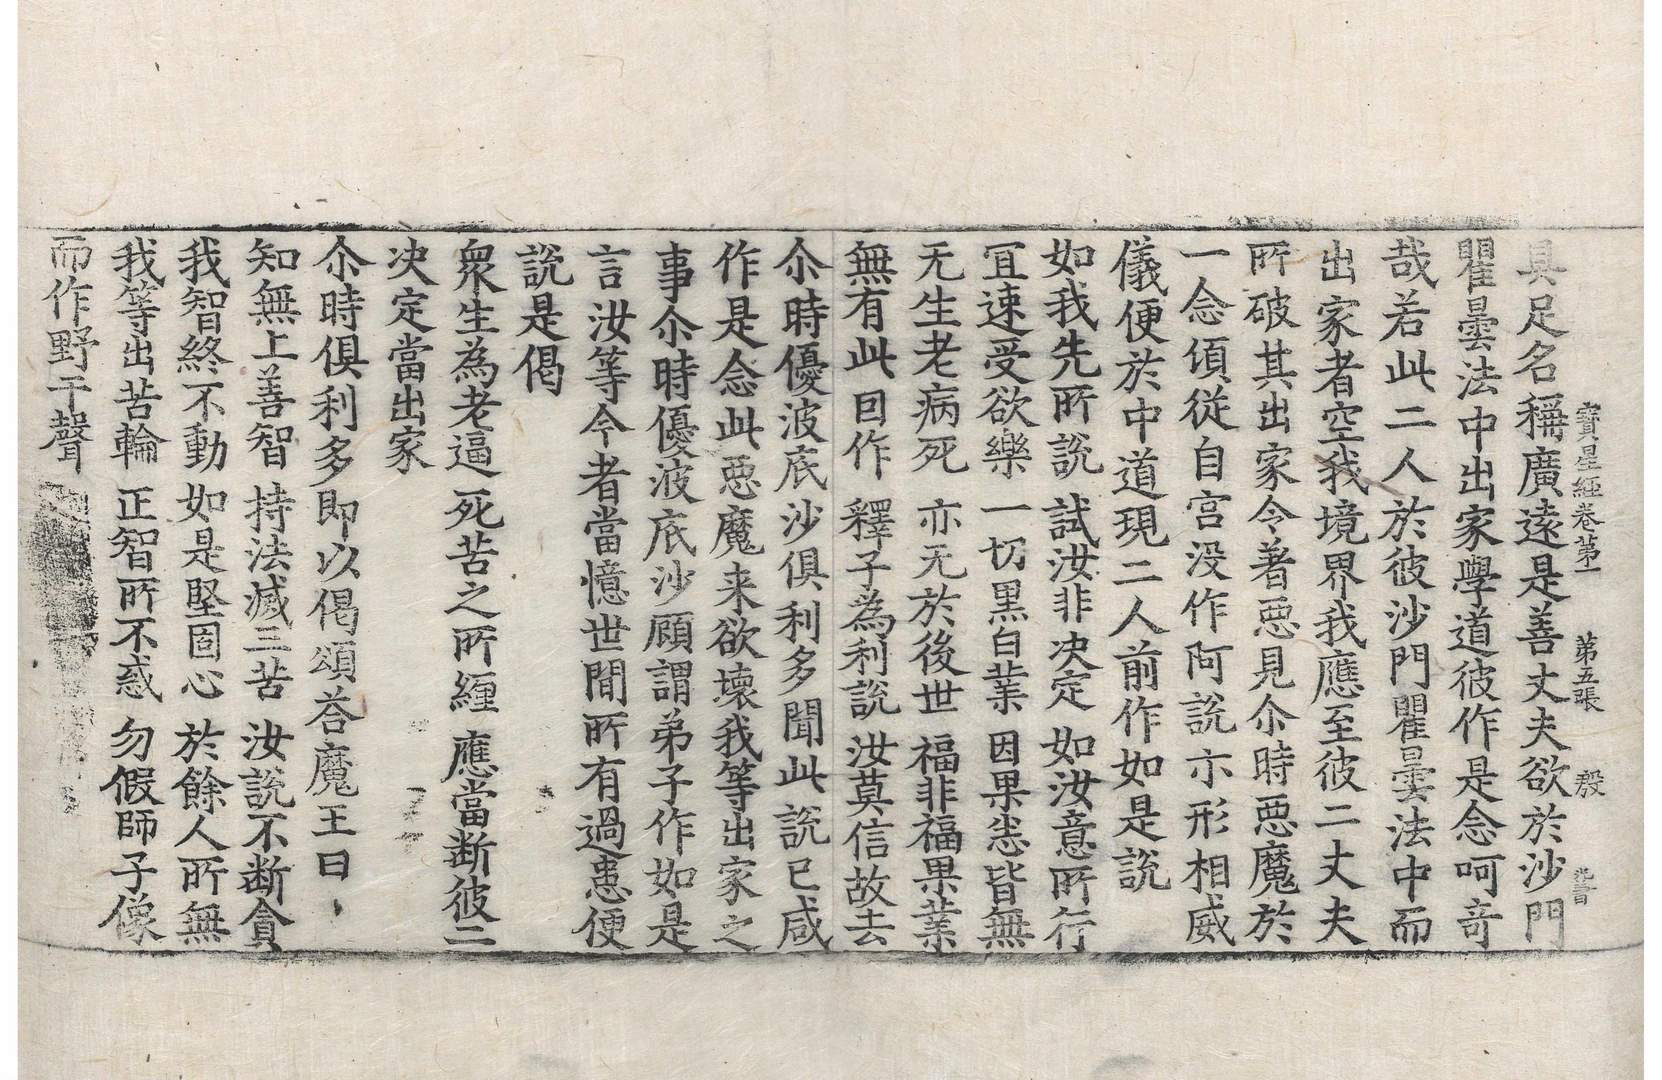 寶星經卷第一 第五張 殷
具足名稱廣遠是善丈夫欲於沙門
瞿曇法中出家學道彼作是念呵奇
哉若此二人於彼沙門瞿曇法中而
出家者空我境界我應至彼二丈夫
所破其出家令著惡見尒時惡魔於
一念頃從自宮没作阿說示形相威
儀便於中道現二人前作如是說
如我先所說 試汝非决定 如汝意所行
冝速受欲樂 一切黑白業 因果悉皆無
无生老病死 亦无於後世 福非福果業
無有此囙作 釋子為利說 汝莫信故去
尒時優波底沙俱利多聞此說已咸
作是念此惡魔来欲壞我等出家之
事尒時優波底沙顧謂弟子作如是
言汝等今者當憶世間所有過患便
說是偈
衆生為老逼 死苦之所纏 應當断彼二
决定當出家
尒時俱利多即以偈頌荅魔王曰
知無上善智 持法滅三苦 汝說不断貪
我智終不動 如是堅固心 於餘人所無
我等出苦輪 正智所不惑 勿假師子像
而作野干聲